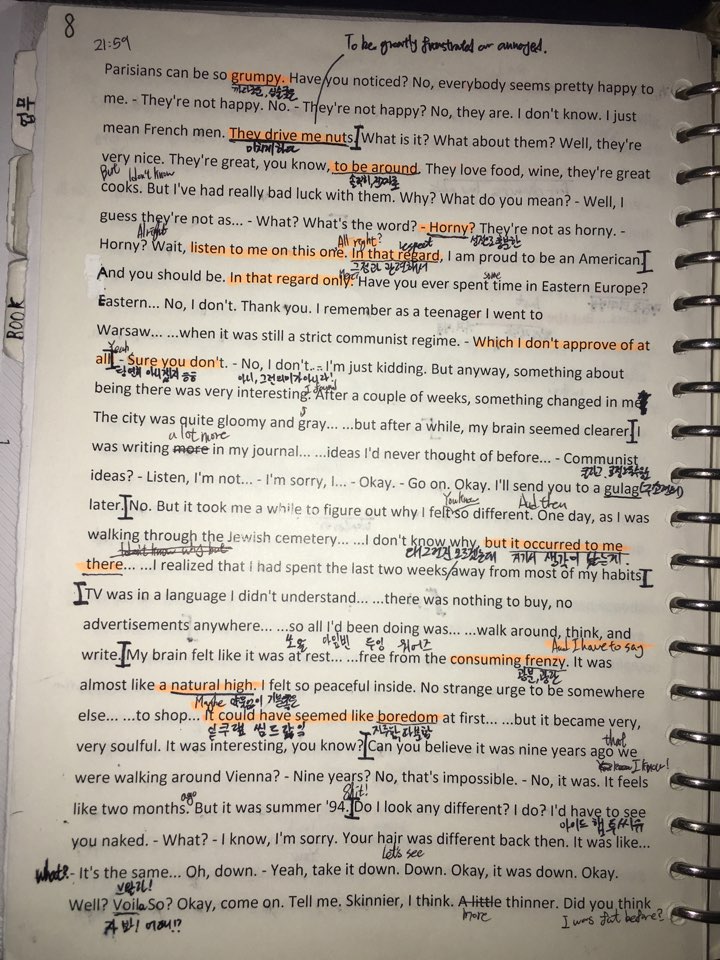 8
21:59
To be greatly frustrated or annoyed.
Parisians can be so grumpy. Have you noticed? No, everybody seems pretty happy to
me. - They're not happy. No. - They're not happy? No, they are. I don't know. I just
mean French men. They drive me nuts. What is it? What about them? Well, they're
미치게 하다
very nice. They're great, you know, to be around. They love food, wine, they're great
But I don't know
cooks. But I've had really bad luck with them. Why? What do you mean? - Well, I
guess they're not as... - What? What's the word? - Horny? They're not as horny. -
Alright
All right?
respect
Horny? Wait, listen to me on this one. In that regard, I am proud to be an American.
그점과 관련해서
some
And you should be. In that regard only. Have you ever spent time in Eastern Europe?
Eastern... No, I don't. Thank you. I remember as a teenager I went to
Warsaw... ...when it was still a strict communist regime. - Which I don't approve of at
Yeah
all. - Sure you don't. - No, I don't... - I'm just kidding. But anyway, something about
당연히 아니겠지
아니, 그런 의미가 아니라!
I found
being there was very interesting. After a couple of weeks, something changed in me
The city was quite gloomy and gray... ...but after a while, my brain seemed clearer. I
a lot more
was writing more in my journal... ...ideas I'd never thought of before... - Communist
ideas? - Listen, I'm not... - I'm sorry, I... - Okay. - Go on. Okay. I'll send you to a gulag
later. No. But it took me a while to figure out why I felt so different. One day, as I was
You know
And then
walking through the Jewish cemetery... ...I don't know why, but it occurred to me
I don't know why but
there... ...I realized that I had spent the last two weeks/away from most of my habits
TV was in a language I didn't understand... ...there was nothing to buy, no
advertisements anywhere... ...so all I'd been doing was... ...walk around, think, and
And I have to say
write. My brain felt like it was at rest... ...free from the consuming frenzy. It was
almost like a natural high. I felt so peaceful inside. No strange urge to be somewhere
Maybe
else... ...to shop... It could have seemed like boredom at first... ...but it became very,
very soulful. It was interesting, you know? Can you believe it was nine years ago we
that
I know!
were walking around Vienna? - Nine years? No, that's impossible. - No, it was. It feels
ago
Shit!
like two months. But it was summer '94. Do I look any different? I do? I'd have to see
you naked. - What? - I know, I'm sorry. Your hair was different back then. It was like...
let's see
what?
- It's the same... Oh, down. - Yeah, take it down. Down. Okay, it was down. Okay.
Well? Voila So? Okay, come on. Tell me. Skinnier, I think. A little thinner. Did you think
more
I was fat before?
자 봐! 어때!?
업무
BOOK